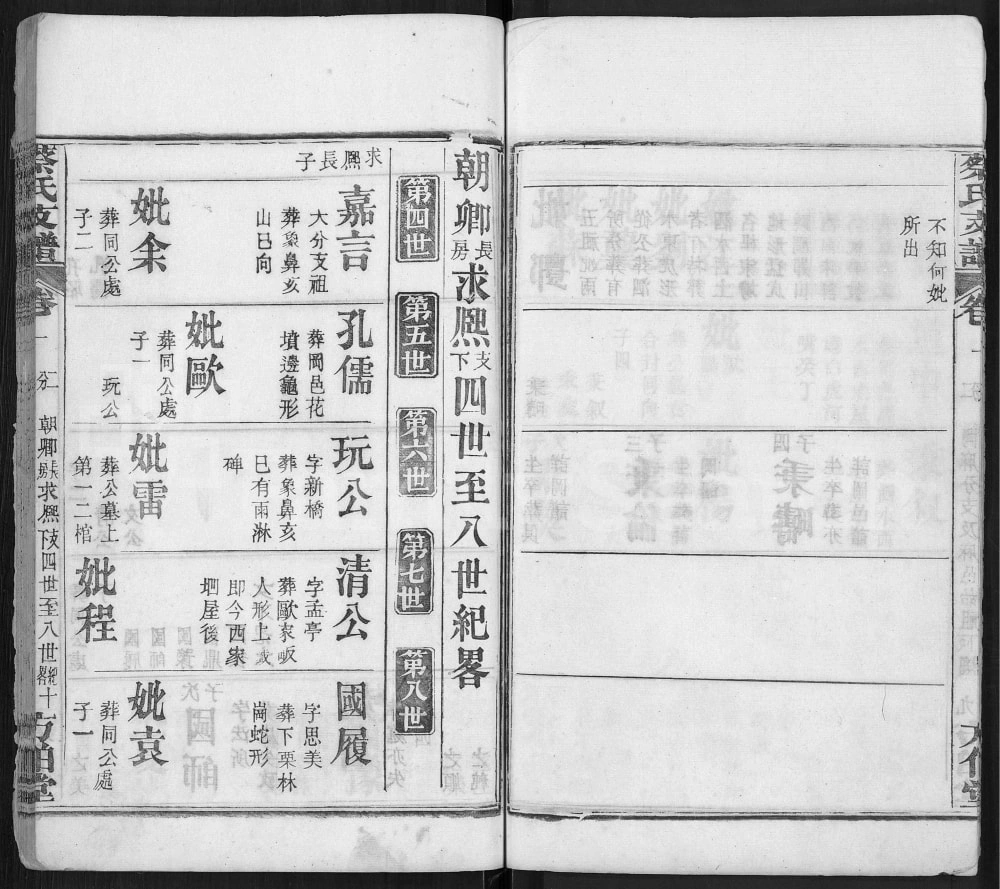 蔡氏支譜
卷一
不知何妣
所出
朝卿長房求熈支下四世至八世紀畧
第四世
第五世
第六世
第七世
第八世
求熈長子
嘉言
大分支祖
葬象鼻亥
山巳向
妣余
葬同公處
子二
孔儒
葬岡邑花
墳邊龜形
妣歐
葬同公處
子一
玩公
玩公
字新橋
葬象鼻亥
巳有雨淋
碑
妣雷
葬公墓上
第一二棺
清公
字孟亭
葬歐家畈
人形上或
即今西家
垇屋後
妣程
國履
字思美
葬下栗林
崗蛇形
妣袁
葬同公處
子一
蔡氏支譜
卷一
朝卿長房求熈支下四世至八世紀畧
十